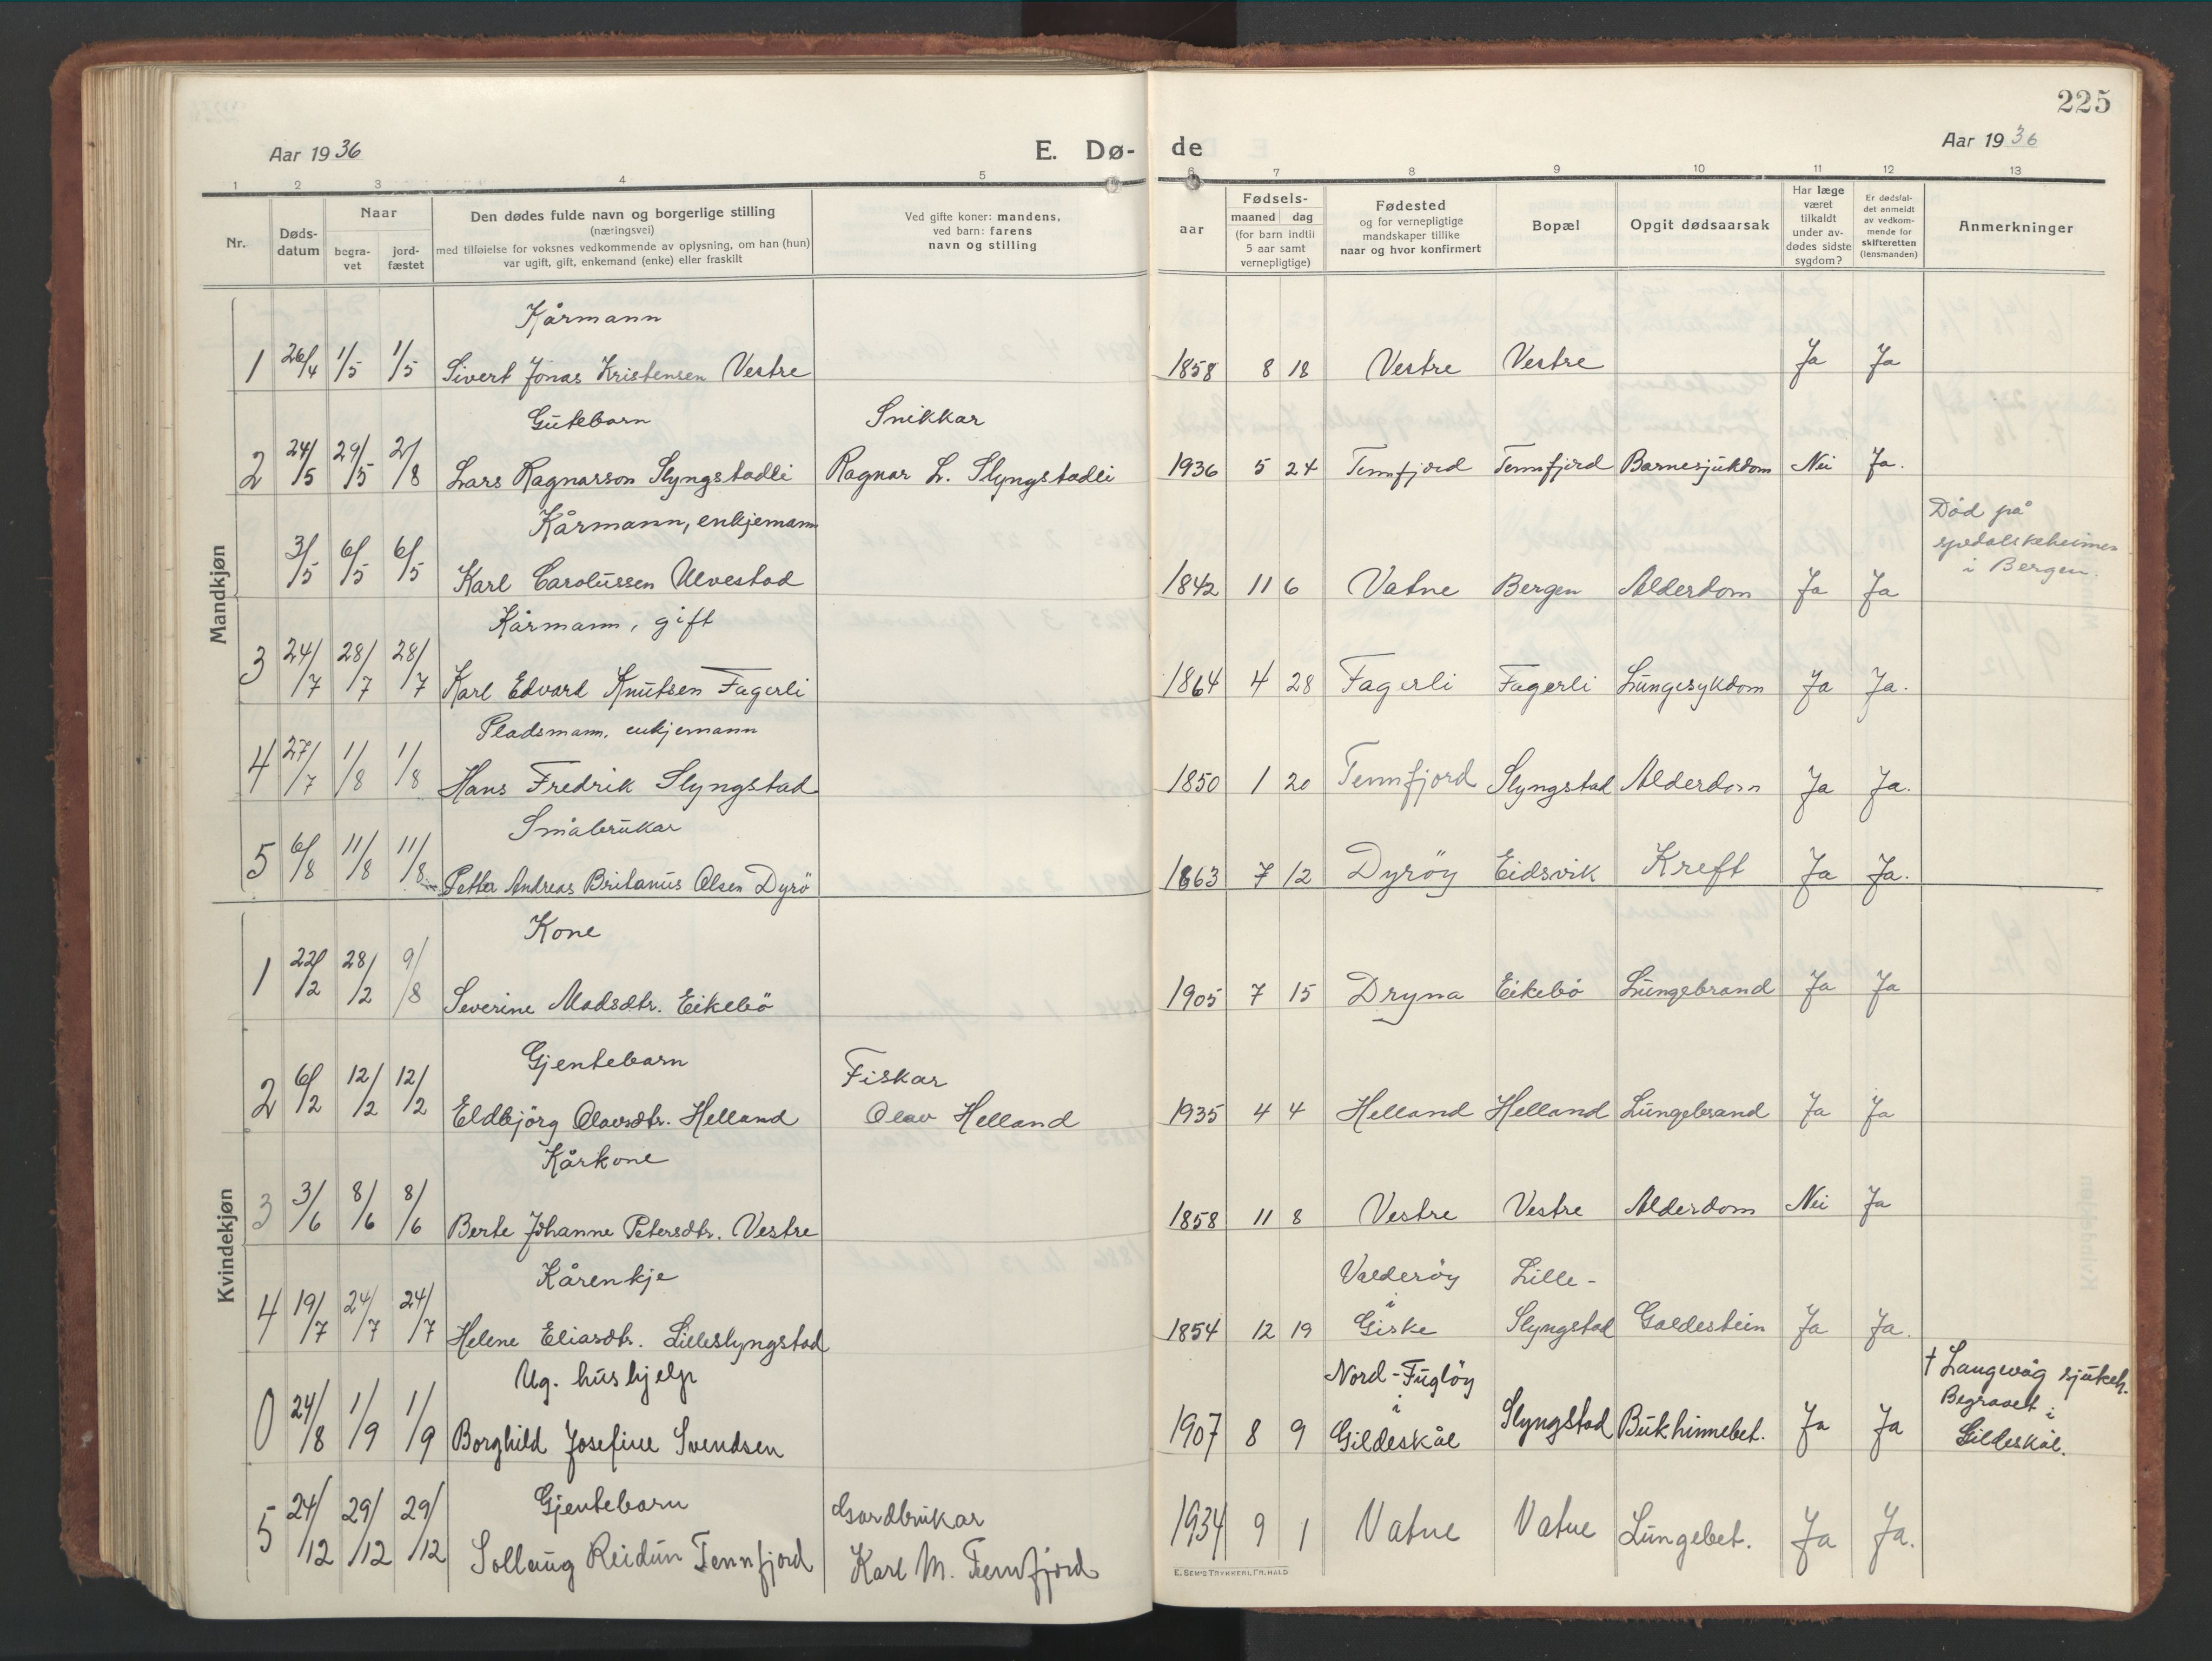 225
Aar 1936
E. Dø-
de
Aar 1936
1 2 3 4 5 6 7 8 9 10 11 12 13
Nr.
Døds-
datum
Naar
begra-
vet
jord-
fæstet
Den dødes fulde navn og borgerlige stilling
(næringsvei)
med tilføielse for voksnes vedkommende av oplysning, om han (hun)
var ugift, gift, enkemand (enke) eller fraskilt
Ved gifte koner: mandens,
ved barn: farens
navn og stilling
aar
Fødsels-
maaned dag
(for barn indtil
5 aar samt
vernepligtige)
Fødested
og for vernepligtige
mandskaper tillike
naar og hvor konfirmert
Bopæl
Opgit dødsaarsak
Har læge
været
tilkaldt
under av-
dødes sidste
sygdom?
Er dødsfal-
det anmeldt
av vedkom-
mende for
skifteretten
(lensmanden)
Anmerkninger
Mandkjøn
Kårmann
1 26/4 1/5 1/5 Sivert Jonas Kristensen Vestre 1858 8 18 Vestre Vestre Ja Ja
Gutebarn Snikkar
2 24/5 29/5 2/8 Lars Ragnarson Slyngstadli Ragnar L. Slyngstadli 1936 5 24 Tennfjord Tennfjord Barnesjukdom Nei Ja.
Kårmann, enkjemann
3/5 6/5 6/5 Karl Carolussen Ulvestad 1842 11 6 Vatne Bergen Alderdom Ja Ja
Død på
spedalskeheimen
i Bergen.
Kårmann, gift
3 24/7 28/7 28/7 Karl Edvard Knutsen Fagerli 1864 4 28 Fagerli Fagerli Lungesykdom Ja Ja.
Pladsmann, enkjemann
4 27/7 1/8 1/8 Hans Fredrik Slyngstad 1850 1 20 Tennfjord Slyngstad Alderdom Ja Ja.
Småbrukar
5 6/8 11/8 11/8 Petter Andreas Britanus Olsen Dyrö 1863 7 12 Dyröy Eidsvik Kreft Ja Ja.
Kvindekjøn
Kone
1 22/2 28/2 9/8 Severine Madsdtr. Eikebö 1905 7 15 Dryna Eikebö Lungebrand Ja Ja
Gjentebarn Fiskar
2 6/2 12/2 12/2 Eldbjörg Olavsdtr. Helland Olav Helland 1935 4 4 Helland Helland Lungebrand Ja Ja
Kårkone
3 3/6 8/6 8/6 Berte Johanne Petersdtr. Vestre 1858 11 8 Vestre Vestre Alderdom Nei Ja
Kårenkje Valderöy Lille-
i
4 19/7 24/7 24/7 Helene Eliasdtr. Lilleslyngstad 1854 12 19 Giske Slyngstad Galdestein Ja Ja.
Ug. hushjelp Nord-Fuglöy † Langevåg sjukeh.
i Begravet i
0 24/8 1/9 1/9 Borghild Josefine Svendsen 1907 8 9 Gildeskål Slyngstad Bukhinnebet. Ja Ja Gildeskål.
Gjentebarn Gardbrukar
5 24/12 29/12 29/12 Sollaug Reidun Tennfjord Karl M. Tennfjord 1934 9 1 Vatne Vatne Lungebet. Ja Ja.
E. SEM'S TRYKKERI, FR.HALD